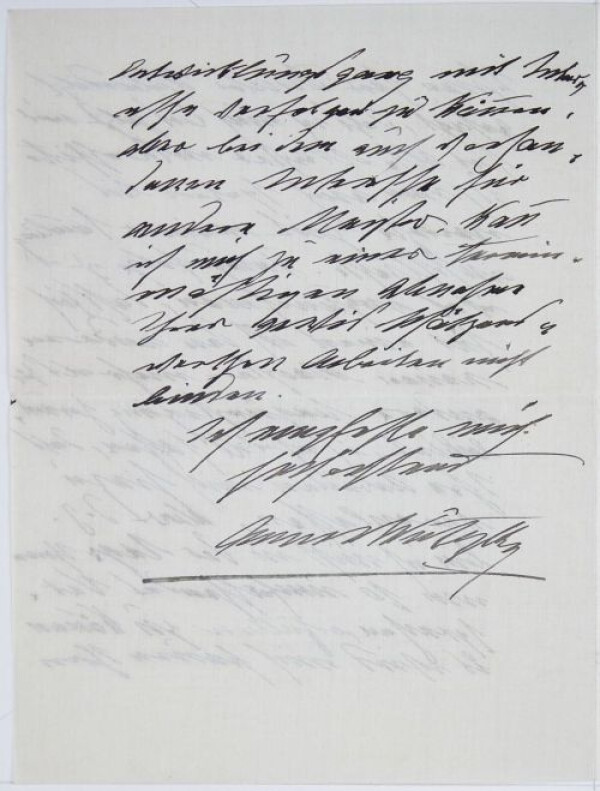 Entwicklungsgang mit Inter-
esse verfolgen zu können,
aber bei dem auch vorhan-
denen Interesse für
andere Meister, kann
ich mich zu einer termin-
mäßigen Abnahme
Ihrer gewiß schätzens-
werthen Arbeiten nicht
binden.
Ich empfehle mich
hochachtend